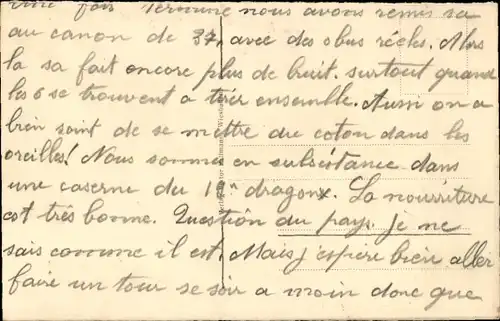 Une fois terminé nous avons remis sa
au canon de 37, avec des obus réels. Alors
la sa fait encore plus de bruit. surtout quand
les 6 se trouvent a tirer ensemble. Aussi on a
bien soint de se mettre du coton dans les
oreilles! Nous sommes en subsistance dans
une caserne du 18e dragons. La nourriture
est très bonne. Question du pays. je ne
sais comme il est. Mais j'espère bien aller
faire un tour se soir a moin donc que